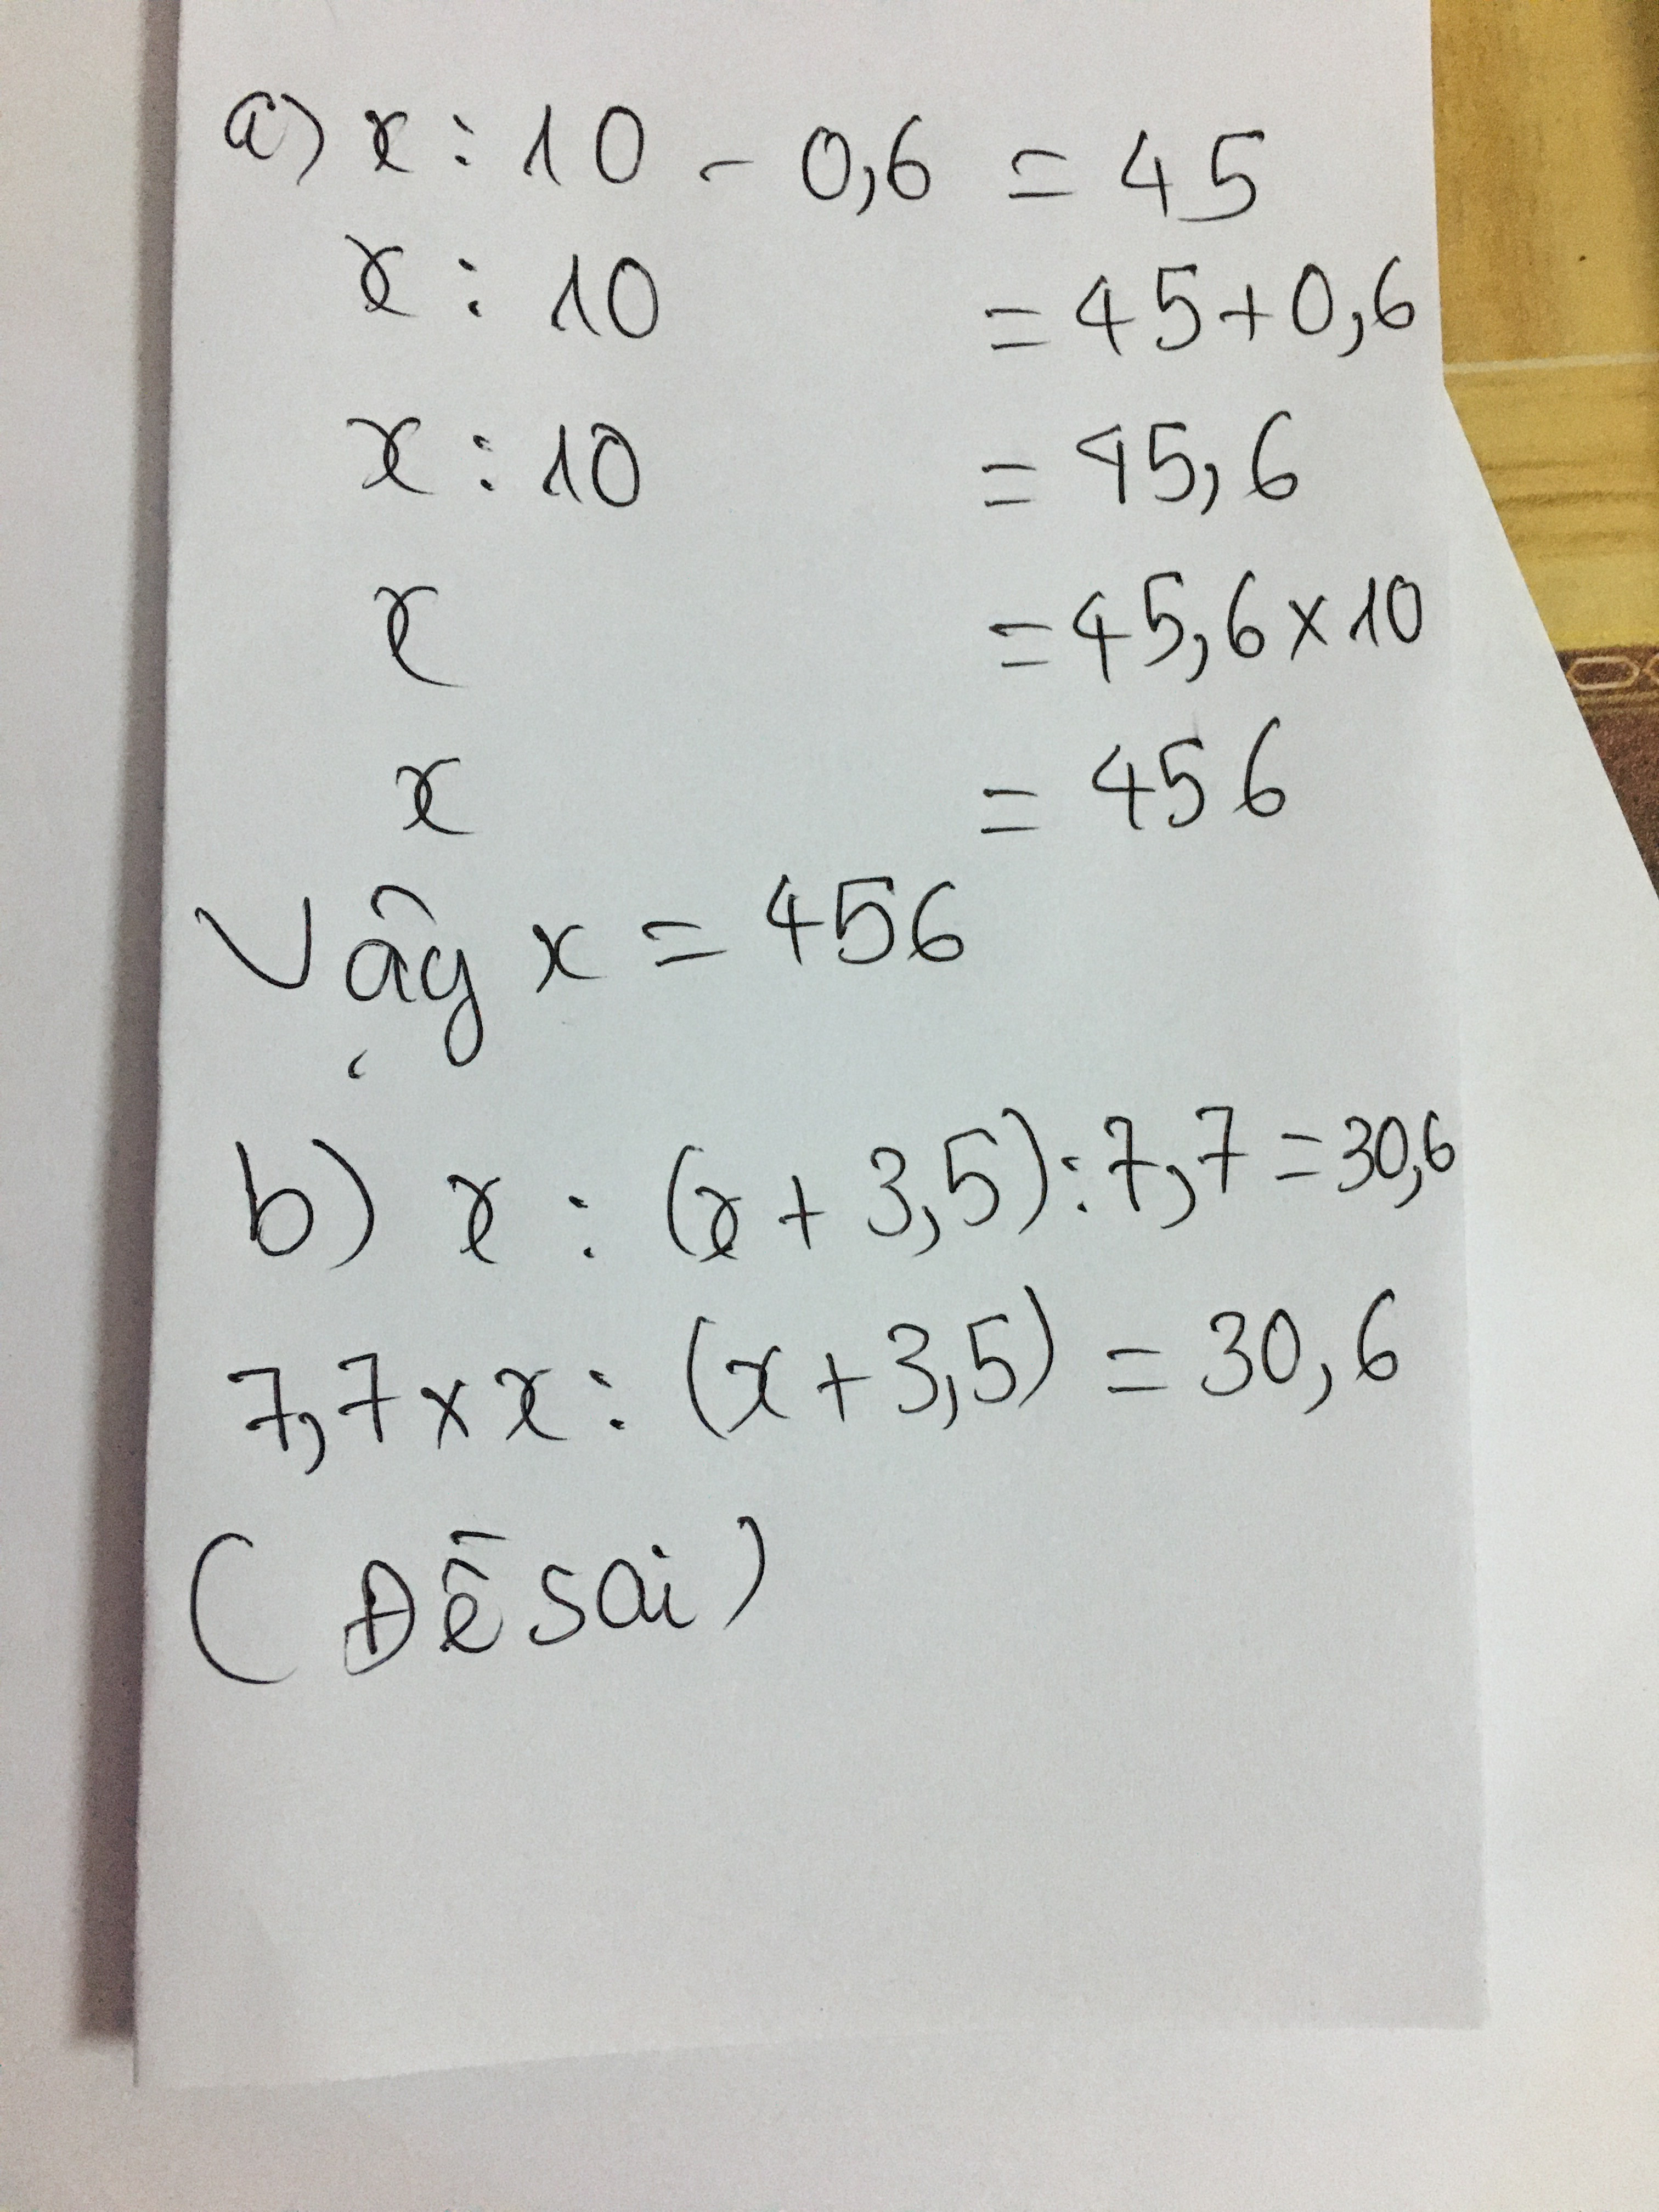 a) x : 10 - 0,6 = 45
x : 10 = 45 + 0,6
x : 10 = 45,6
x = 45,6 x 10
x = 456
Vậy x = 456
b) x : (x + 3,5) : 7,7 = 30,6
7,7 x x : (x + 3,5) = 30,6
(Đề sai)